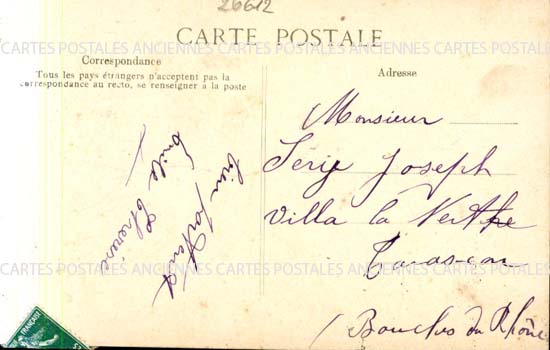 26612
CARTE POSTALE
CARTES POSTALES ANCIENNES CARTES POSTALES ANCIENNES CARTES POSTALES ANCIENNES
Correspondance
Tous les pays étrangers n'acceptent pas la
correspondance au recto, se renseigner à la poste
bien
Emile
Adresse
Monsieur
Joseph
Villa la
Tarascon
(Bouches du Rhône
CARTES POSTALES ANCIENNES CARTES POSTALES ANCIENNES CARTES POSTALES ANCIENNES
FRANÇAISE